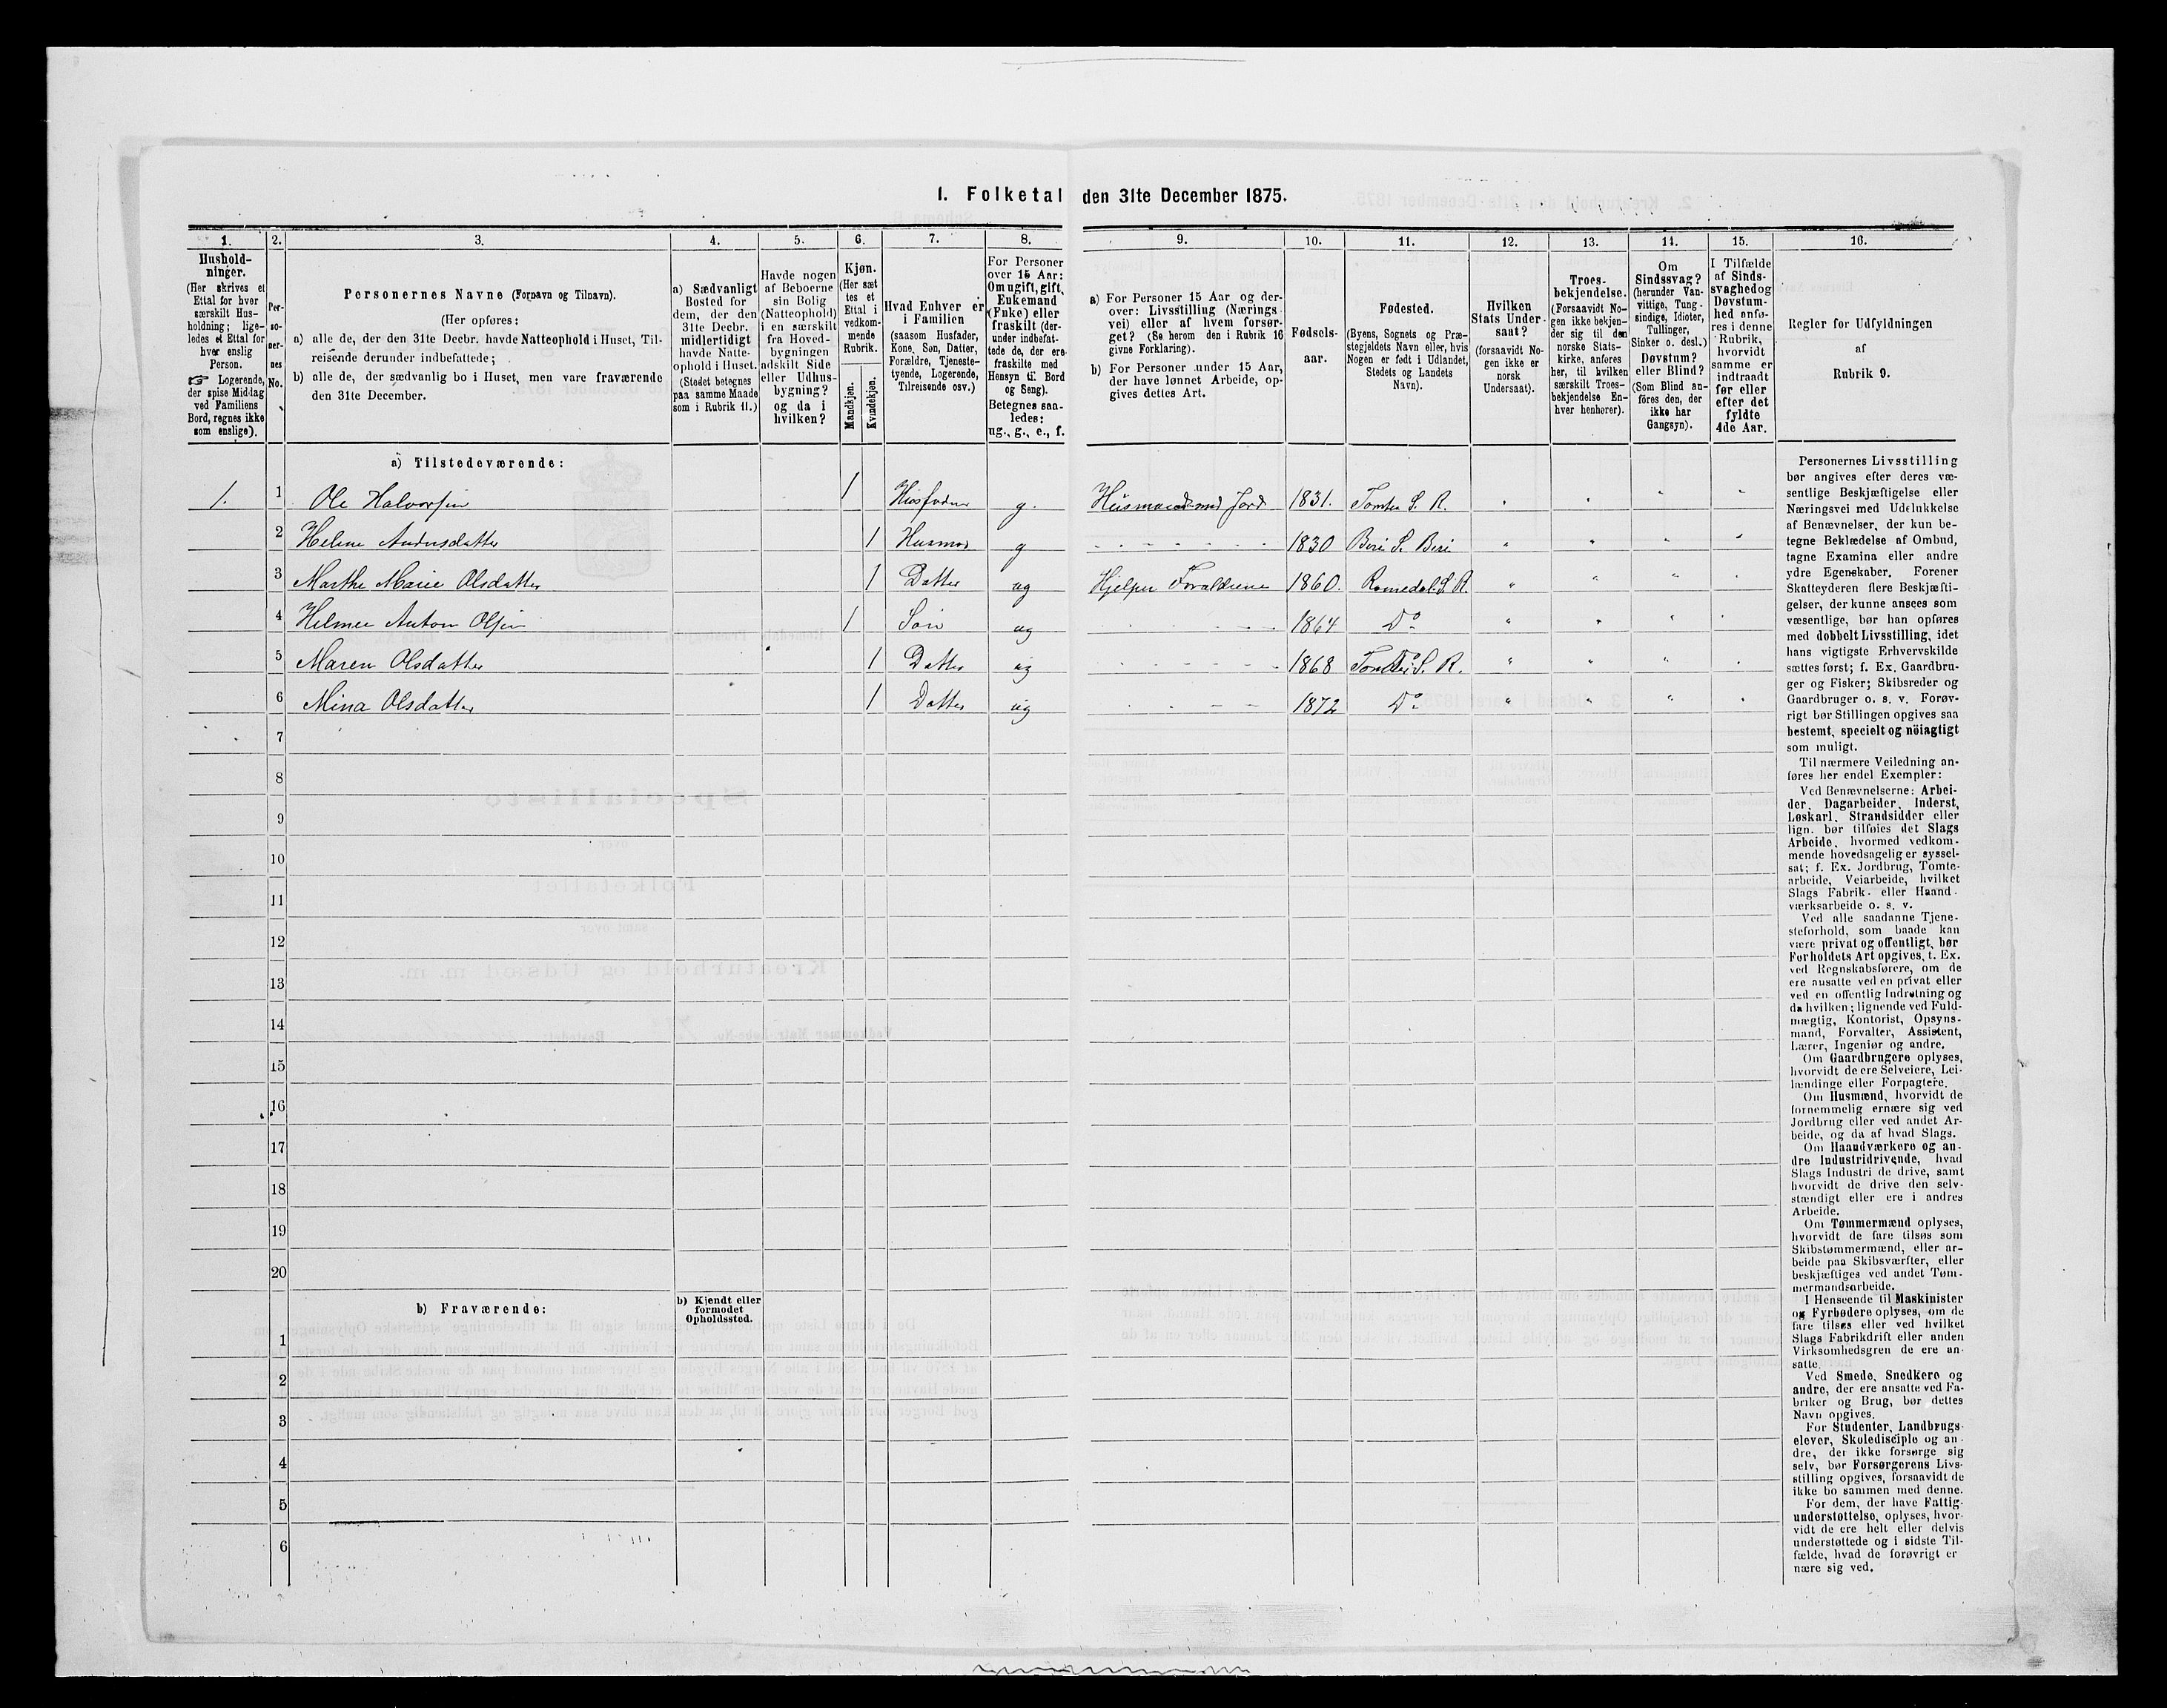 I. Folketal den 31te December 1875.
1. 2. 3. 4. 5. 6. 7. 8. 9. 10. 11. 12. 13. 14. 15. 16.
Hushold-
ninger.
(Her skrives et
Ettal for hver
særskilt Hus-
holdning; lige-
ledes et Ettal for
hver enslig
Person.
☞ Logerende,
der spise Middag
ved Familiens
Bord, regnes ikke
som enslige).
Per-
so-
ner-
nes
No.
Personernes Navne (Fornavn og Tilnavn).
(Her opføres:
a) alle de, der den 31te Decbr. havde Natteophold i Huset, Til-
reisende derunder indbefattede;
b) alle de, der sædvanlig bo i Huset, men vare fraværende
den 31te December.
a) Sædvanligt
Bosted for
dem, der den
31te Decbr.
midlertidigt
havde Natte-
ophold i Huset.
(Stedet betegnes
paa samme Maade
som i Rubrik 11.)
Havde nogen
af Beboerne
sin Bolig
(Natteophold)
i en særskilt
fra Hoved-
bygningen
adskilt Side
eller Udhus-
bygning?
og da i
hvilken?
Kjøn.
(Her sæt
tes et
Ettal i
vedkom-
mende
Rubrik.
Mandkjøn.
Kvindekjøn.
Hvad Enhver er
i Familien
(saasom Husfader,
Kone, Søn, Datter,
Forældre, Tjeneste-
tyende, Logerende,
Tilreisende osv.)
For Personer
over 15 Aar:
Om ugift, gift,
Enkemand
(Enke) eller
fraskilt (der-
under indbefat-
tede de, der ere
fraskilte med
Hensyn til Bord
og Seng).
Betegnes saa-
ledes:
ug., g., e., f.
a) For Personer 15 Aar og der-
over: Livsstilling (Nærings
vei) eller af hvem forsør-
get? (Se herom den i Rubrik 16
givne Forklaring).
b) For Personer under 15 Aar,
der have lønnet Arbeide, op-
gives dettes Art.
Fødsels-
aar.
Fødested.
(Byens, Sognets og Præ-
stegjeldets Navn eller, hvis
Nogen er født i Udlandet,
Stedets og Landets
Navn).
Hvilken
Stats Under-
saat?
(forsaavidt No-
gen ikke er
norsk
Undersaat).
Troes-
bekjendelse.
(Forsaavidt No-
gen ikke bekjen-
der sig til den
norske Stats-
kirke, anføres
her, til hvilken
særskilt Troes-
bekjendelse En-
hver henhører).
Om
Sindssvag?
(herunder Van-
vittige, Tung-
sindige, Idioter,
Tullinger,
Sinker o. desl.)
Døvstum?
eller Blind?
(Som Blind an-
føres den, der
ikke har
Gangsyn).
I Tilfælde
af Sinds-
svaghed og
Døvstum-
hed anfø-
res i denne
Rubrik,
hvorvidt
samme er
indtraadt
før eller
efter det
fyldte
4de Aar.
Regler for Udfyldningen
af
Rubrik 9.
a) Tilstedeværende:
1. 1 Ole Halvorsen 1 Husfader g. Husmand med Jord 1831. Tomter S. R.
2 Helene Andersdatter 1 Husmor g 1830 Biri S. Biri
3 Marthe Marie Olsdatter 1 Datter ug Hjelper Foraldrene 1860. Romedal S. R.
4 Helmer Anton Olsen 1 Søn ug 1864 Do
5 Maren Olsdatter 1 Datter ug 1868 Tomter S. R.
6 Mina Olsdatter 1 Datter ug 1872 Do
7
8
9
10
11
12
13
14
15
16
17
18
19
20
b) Fraværende:
b) Kjendt eller
formodet
Opholdssted.
1
2
3
4
5
6
Personernes Livsstilling
bør angives efter deres væ-
sentlige Beskjæftigelse eller
Næringsvei med Udelukkelse
af Benævnelser, der kun be-
tegne Beklædelse af Ombud,
tagne Examina eller andre
ydre Egenskaber. Forener
Skatteyderen flere Beskjæfti-
gelser, der kunne ansees som
væsentlige, bør han opføres
med dobbelt Livsstilling, idet
hans vigtigste Erhvervskilde
sættes først; f. Ex. Gaardbru-
ger og Fisker; Skibsreder og
Gaardbruger o. s. v. Forøv-
rigt bør Stillingen opgives saa
bestemt, specielt og nöiagtigt
som muligt.
Til nærmere Veiledning an-
føres her endel Exempler:
Ved Benævnelserne: Arbei-
der, Dagarbeider, Inderst,
Løskarl, Strandsidder eller
lign. bør tilføies det Slags
Arbeide, hvormed vedkom-
mende hovedsagelig er syssel-
sat; f. Ex. Jordbrug, Tomte-
arbeide, Veiarbeide, hvilket
Slags Fabrik- eller Haand-
værksarbeide o. s. v.
Ved alle saadanne Tjene-
steforhold, som baade kan
være privat og offentligt, bør
Forholdets Art opgives, t. Ex.
ved Regnskabsførere, om de
ere ansatte ved en privat eller
ved en offentlig Indretning og
da hvilken; lignende ved Fuld-
mægtig, Kontorist, Opsyns-
mand, Forvalter, Assistent,
Lærer, Ingeniør og andre.
Om Gaardbrugere oplyses,
hvorvidt de ere Selveiere, Lei-
lændinge eller Forpagtere.
Om Husmænd, hvorvidt de
fornemmelig ernære sig ved
Jordbrug eller ved andet Ar-
beide, og da af hvad Slags.
Om Haandværkere og an-
dre Industridrivende, hvad
Slags Industri de drive, samt
hvorvidt de drive den selv-
stændigt eller ere i andres
Arbeide.
Om Tømmermænd oplyses,
hvorvidt de fare tilsøs som
Skibstømmermænd, eller ar-
beide paa Skibsværfter, eller
beskjæftiges ved andet Tøm-
mermandsarbeide.
I Henseende til Maskinister
og Fyrbødere oplyses, om de
fare tilsøs eller ved hvilket
Slags Fabrikdrift eller anden
Virksomhedsgren de ere an-
satte.
Ved Smede, Snedkere og
andre, der ere ansatte ved Fa-
briker og Brug, bør dettes
Navn opgives.
For Studenter, Landbrugs-
elever, Skoledisciple og an-
dre, der ikke forsørge sig
selv, bør Forsørgerens Livs-
stilling opgives, forsaavidt de
ikke bo sammen med denne.
For dem, der have Fattig-
understøttelse, oplyses, hvor-
vidt de ere helt eller delvis
understøttede og i sidste Til-
fælde, hvad de forøvrigt er
nære sig ved.